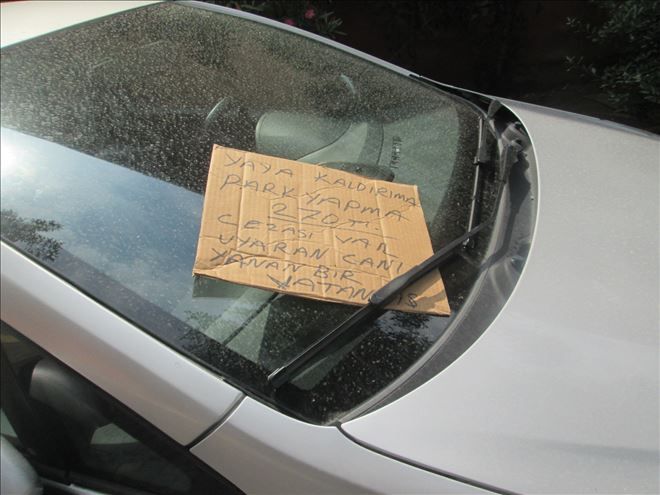 YAYA KALDIRIMA
PARK YAPMA
270 TL.
CEZASI VAR
UYARAN CANI
YANAN BİR
VATANDAŞ